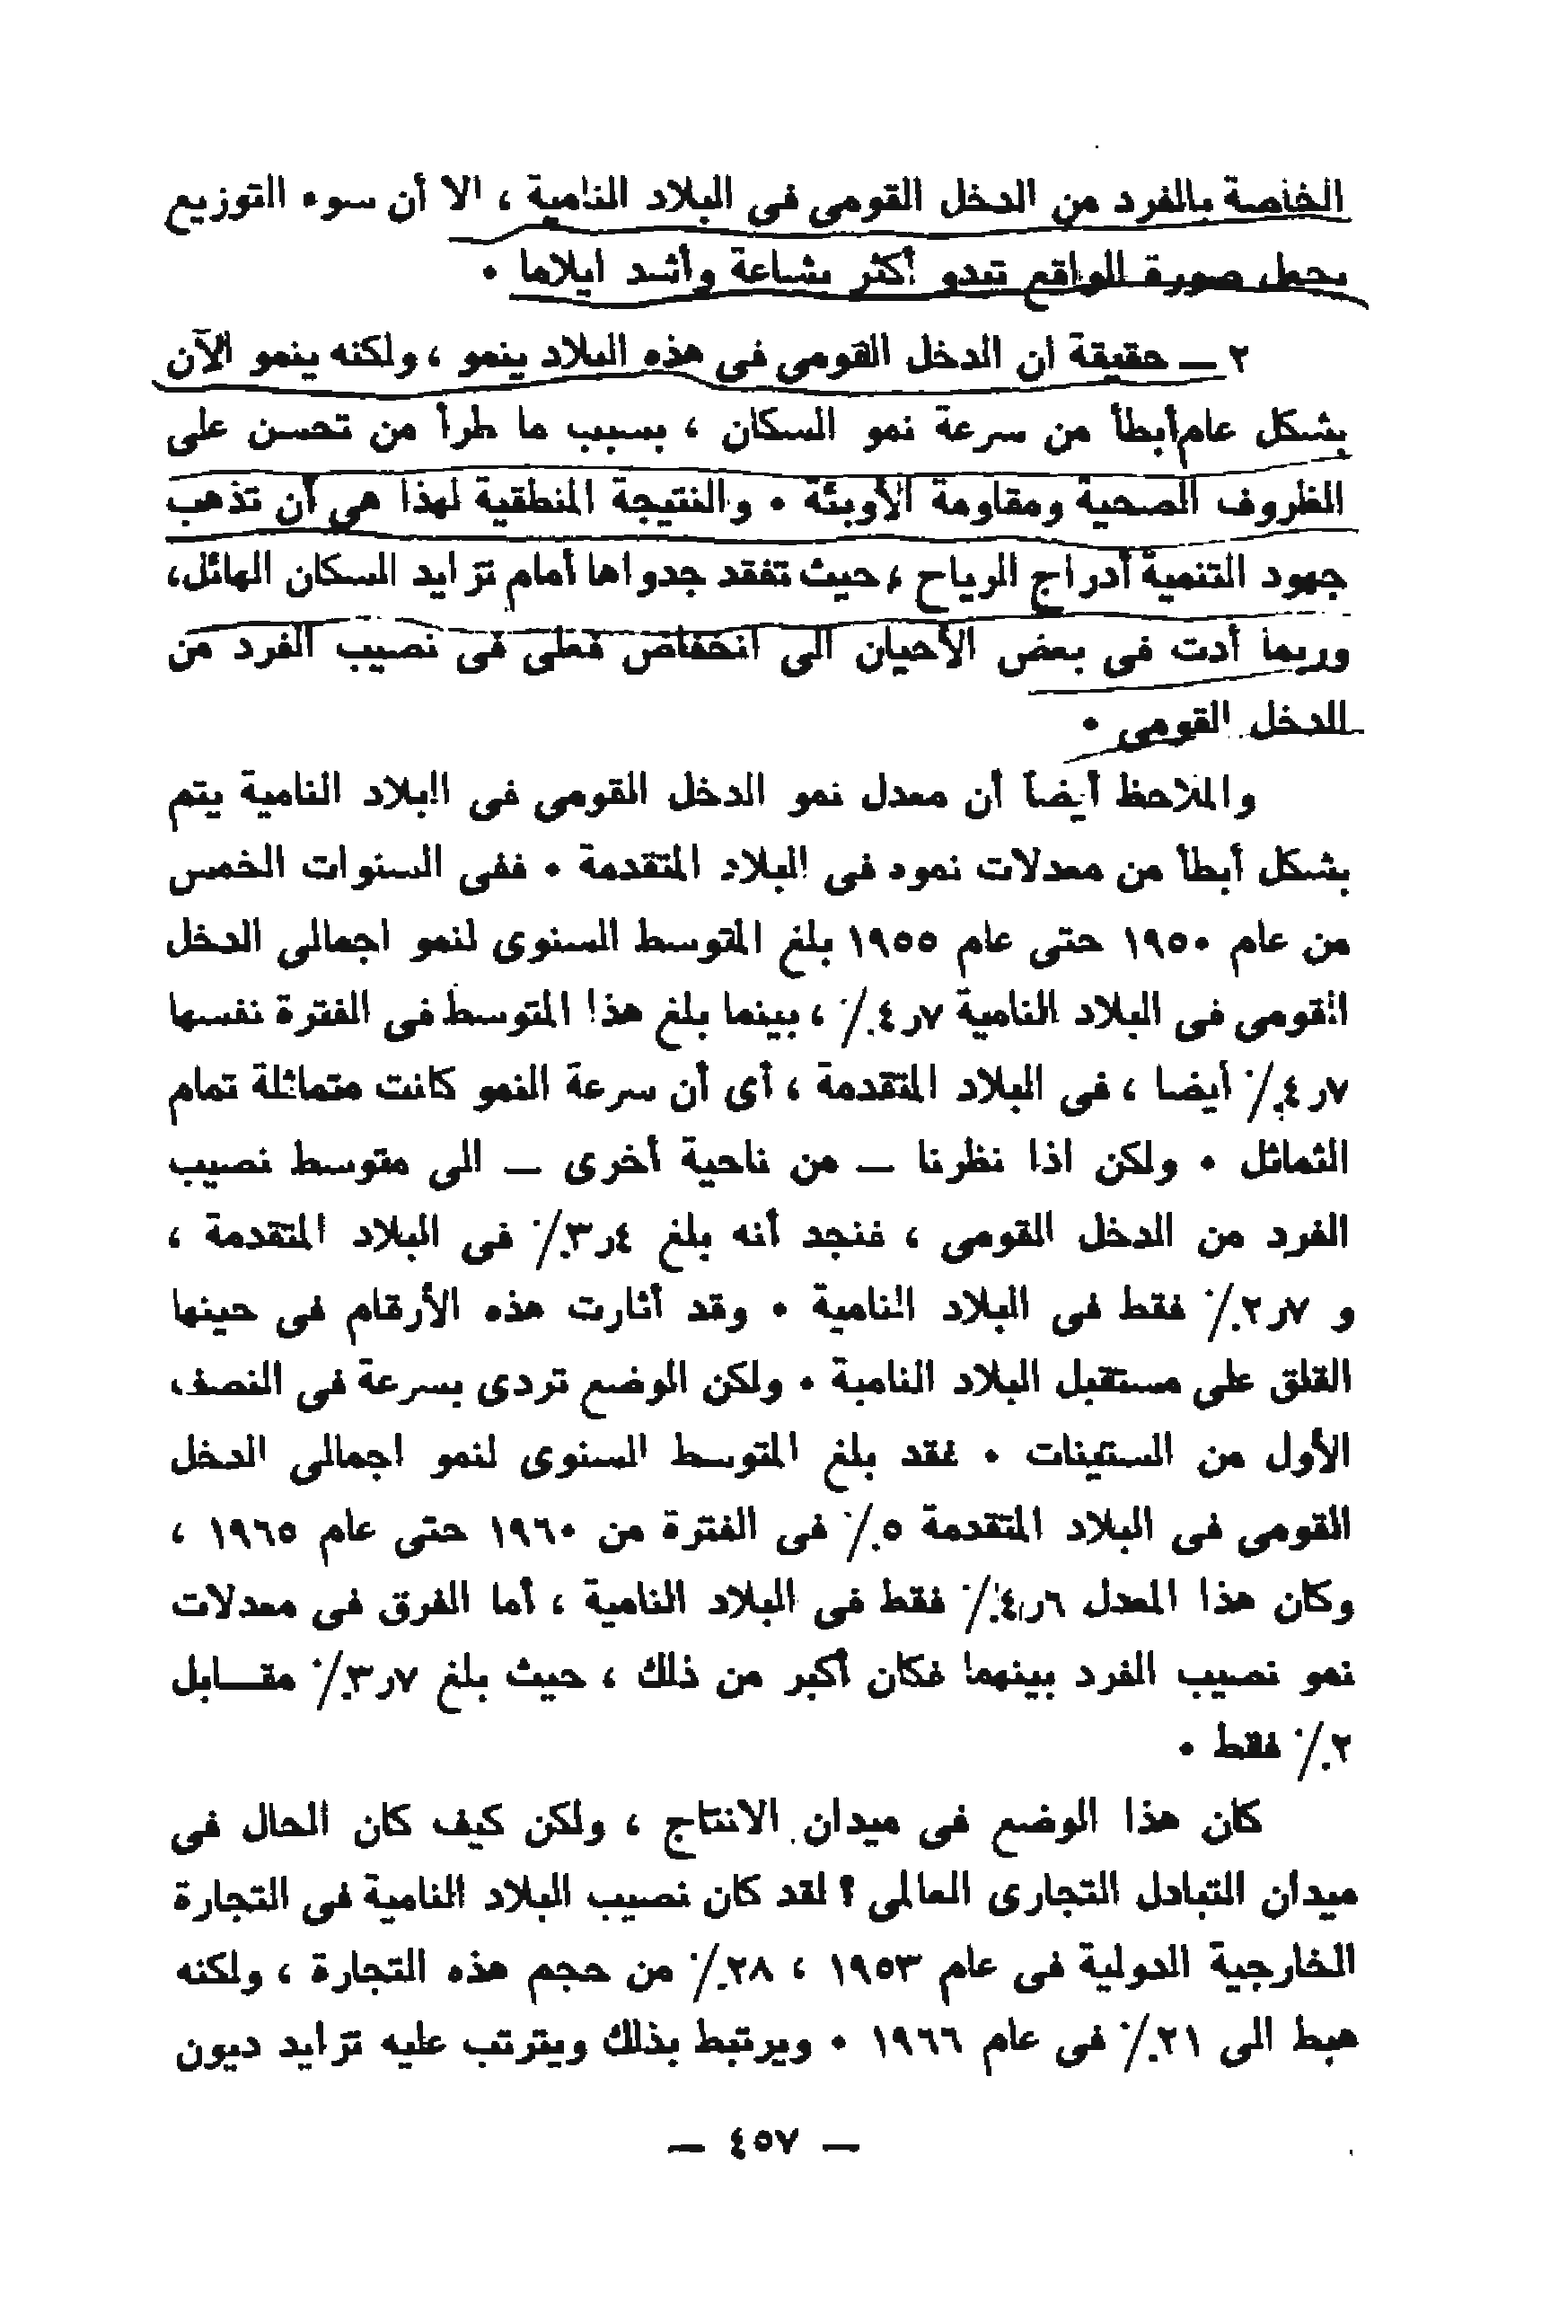 الخاصة بالفرد من الدخل القومى فى البلاد النامية ، الا أن سوء التوزيع
يجعل صورة الواقع تبدو أكثر بشاعة وأشد ايلاما •
٢ — حقيقة ان الدخل القومى فى هذه البلاد ينمو ، ولكنه ينمو الآن
بشكل عام أبطأ من سرعة نمو السكان ، بسبب ما طرأ من تحسن على
الظروف الصحية ومقاومة الأوبئة • والنتيجة المنطقية لهذا هى أن تذهب
جهود التنمية أدراج الرياح ، حيث تفقد جدواها أمام تزايد السكان الهائل،
وربما أدت فى بعض الأحيان الى انخفاض فعلى فى نصيب الفرد من
الدخل القومى •
والملاحظ أيضا أن معدل نمو الدخل القومى فى البلاد النامية يتم
بشكل أبطأ من معدلات نموه فى البلاد المتقدمة • ففى السنوات الخمس
من عام ١٩٥٠ حتى عام ١٩٥٥ بلغ المتوسط السنوى لنمو اجمالى الدخل
القومى فى البلاد النامية ٧ر٤٪ ، بينما بلغ هذا المتوسط فى الفترة نفسها
٧ر٤٪ أيضا ، فى البلاد المتقدمة ، أى أن سرعة النمو كانت متماثلة تمام
التماثل • ولكن اذا نظرنا — من ناحية أخرى — الى متوسط نصيب
الفرد من الدخل القومى ، فنجد أنه بلغ ٤ر٣٪ فى البلاد المتقدمة ،
و ٧ر٢٪ فقط فى البلاد النامية • وقد أثارت هذه الأرقام فى حينها
القلق على مستقبل البلاد النامية • ولكن الوضع تردى بسرعة فى النصف
الأول من الستينات • فقد بلغ المتوسط السنوى لنمو اجمالى الدخل
القومى فى البلاد المتقدمة ٥٪ فى الفترة من ١٩٦٠ حتى عام ١٩٦٥ ،
وكان هذا المعدل ٦ر٤٪ فقط فى البلاد النامية ، أما الفرق فى معدلات
نمو نصيب الفرد بينهما فكان أكبر من ذلك ، حيث بلغ ٧ر٣٪ مقــابل
٢٪ فقط •
كان هذا الوضع فى ميدان الانتاج ، ولكن كيف كان الحال فى
ميدان التبادل التجارى العالمى ؟ لقد كان نصيب البلاد النامية فى التجارة
الخارجية الدولية فى عام ١٩٥٣ ، ٢٨٪ من حجم هذه التجارة ، ولكنه
هبط الى ٢١٪ فى عام ١٩٦٦ • ويرتبط بذلك ويترتب عليه تزايد ديون
— ٤٥٧ —